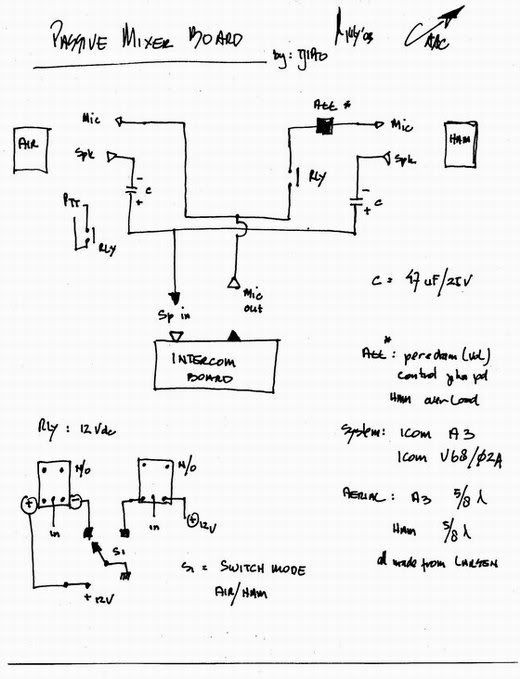 PASSIVE MIXER BOARD
by: TJIPTO
Att *
Mic
Mic
AIR
HAM
Spk
Spk
RLY
-
C
+
-
C
+
PTT
RLY
Sp in
Mic
out
C = 47 uF/25V
INTERCOM
BOARD
*
Att : peredam (vol)
control gha pd
HAM overload
RLY : 12 Vdc
System: Icom A3
Icom V68/Ø2A
N/O
N/O
+
-
in
in
+ 12V
S1
AERIAL: A3 5/8 λ
HAM 5/8 λ
all made from LARSEN
+ 12V
S1 = SWITCH MODE
AIR/HAM